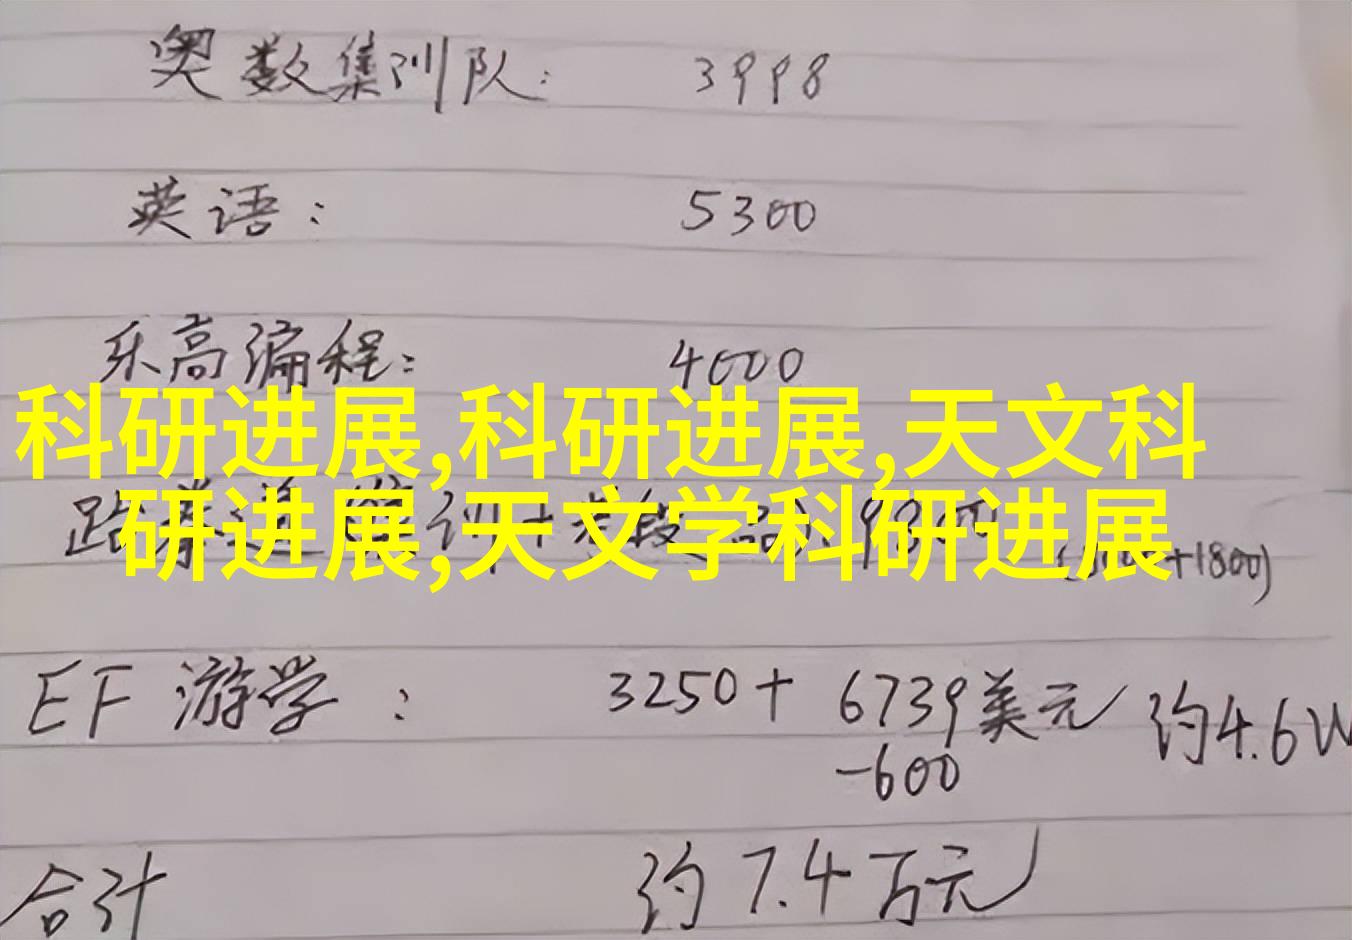 奥数集训队: 3998
英语: 5300
乐高编程: 4000
科研进展,科研进展,天文科
研进展,天文学科研进展
+1800)
EF 游学: 3250+ 6739美元 约4.6W
-600
合计 约7.4万元